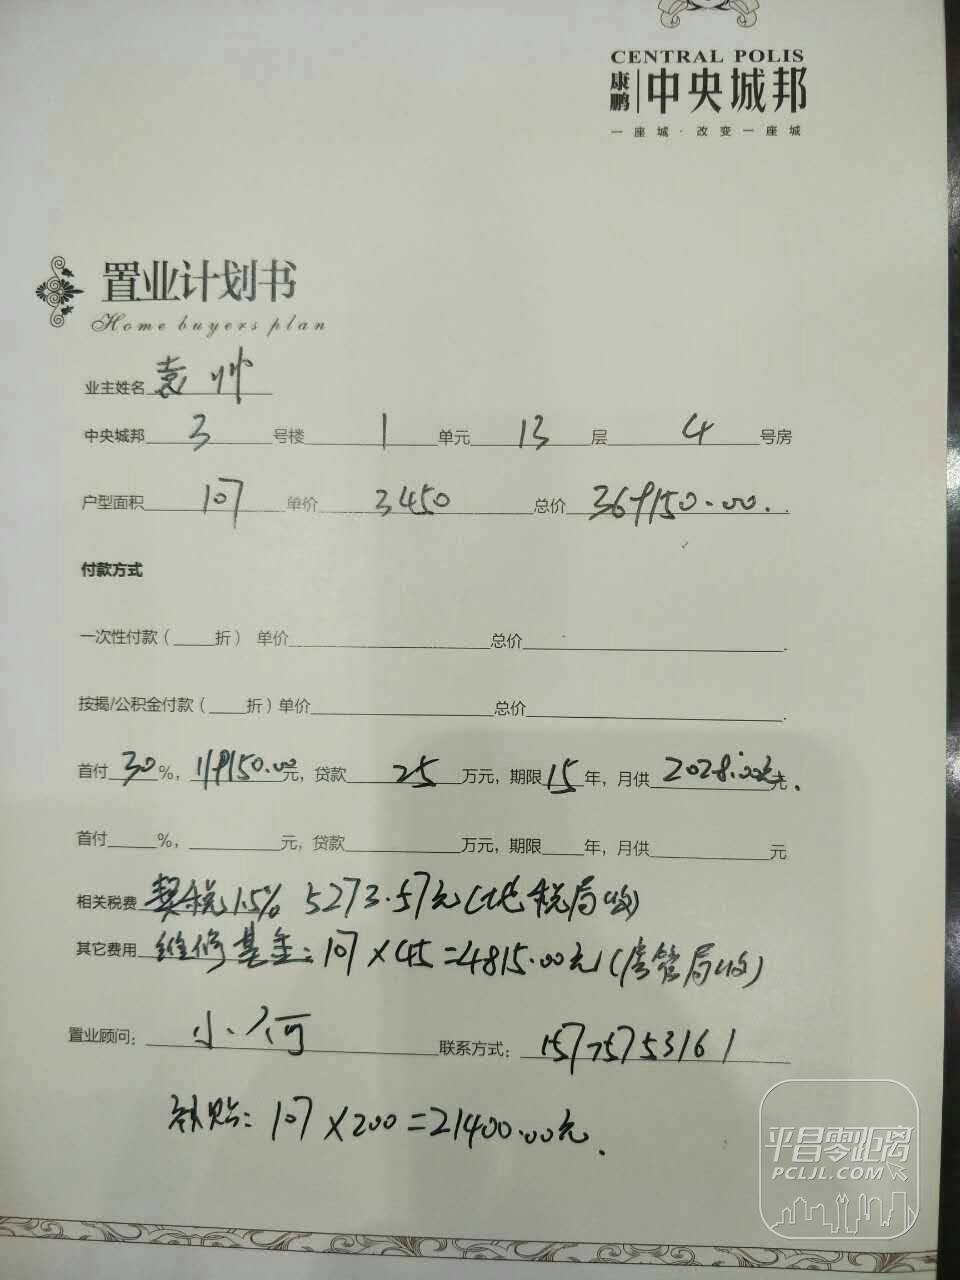 CENTRAL POLIS
康鹏 中央城邦
一座城·改变一座城
置业计划书
Home buyers plan
业主姓名 袁帅
中央城邦 3 号楼 1 单元 13 层 4 号房
户型面积 107 单价 3450 总价 369150.00.
付款方式
一次性付款（____折） 单价____总价____.
按揭/公积金付款（____折）单价____总价____.
首付 30 %，119150.00元，贷款 25 万元，期限 15 年，月供 2028.00元 元.
首付____%，____元，贷款____万元，期限____年，月供____元
相关税费 契税1.5% 5273.57元(地税局收)
其它费用 维修基金：107×45=4815.00元(房管局收)
置业顾问：小何 联系方式：15775753161
补贴：107×200=21400.00元.
平昌零距离
PCLJL.COM